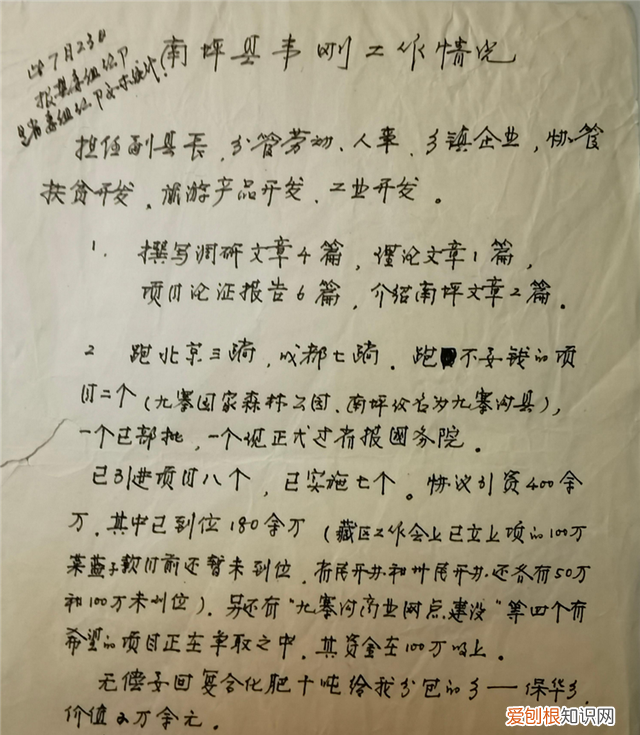 7月23日
南坪县韦刚工作情况
担任副县长，分管劳动、人事、乡镇企业，协管
扶贫开发、旅游产品开发、工业开发。
1. 撰写调研文章4篇，理论文章1篇，
项目论证报告6篇，介绍南坪文章2篇。
2 跑北京三趟，成都七趟。跑不要钱的项
目二个（九寨国家森林公园、南坪改名为九寨沟县），
一个已部批，一个现正式过省报国务院。
已引进项目八个，已实施七个。协议引资400余
万，其中已到位180余万（藏区工作会上已立上项的100万
菜蓝子款目前还暂未到位，省民开办和州民开办还各有50万
和100万未到位）。另还有“九寨沟商业网点建设”等四个有
希望的项目正在争取之中，其资金在100万以上。
无偿要回复合化肥十吨给我分包的乡——保华乡，
价值2万余元。
爱刨根知识网
www.baogenzhishi.com